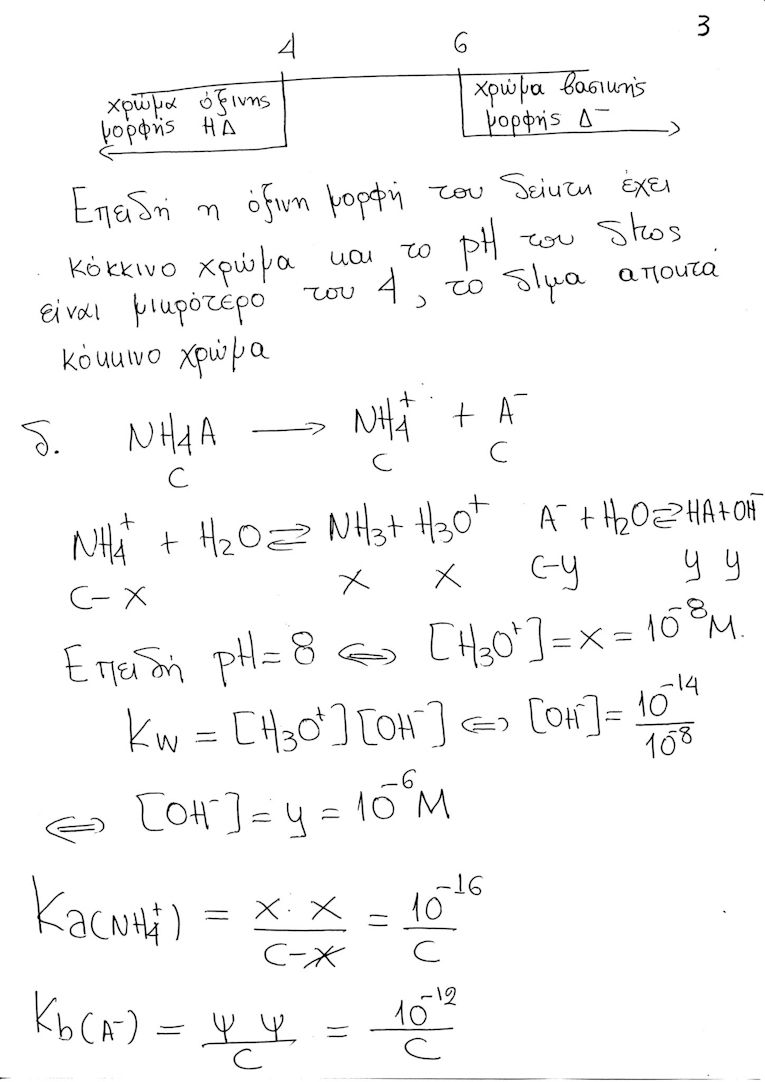 3
4 6
χρώμα όξινης
μορφής ΗΔ
χρώμα βασικής
μορφής Δ⁻
Επειδή η όξινη μορφή του δείκτη έχει
κόκκινο χρώμα και το pH του δ/τος
είναι μικρότερο του 4, το δ/μα αποκτά
κόκκινο χρώμα
δ. NH₄A ⟶ NH₄⁺ + A⁻
C C C
NH₄⁺ + H₂O ⇌ NH₃ + H₃O⁺ A⁻ + H₂O ⇌ HA + OH⁻
C-x x x C-y y y
Επειδή pH = 8 ⇔ [H₃O⁺] = x = 10⁻⁸ M.
Kw = [H₃O⁺][OH⁻] ⇔ [OH⁻] = 10⁻¹⁴ / 10⁻⁸
⇔ [OH⁻] = y = 10⁻⁶ M
Ka(NH₄⁺) = x · x / C-x = 10⁻¹⁶ / C
Kb(A⁻) = ψ ψ / C = 10⁻¹² / C